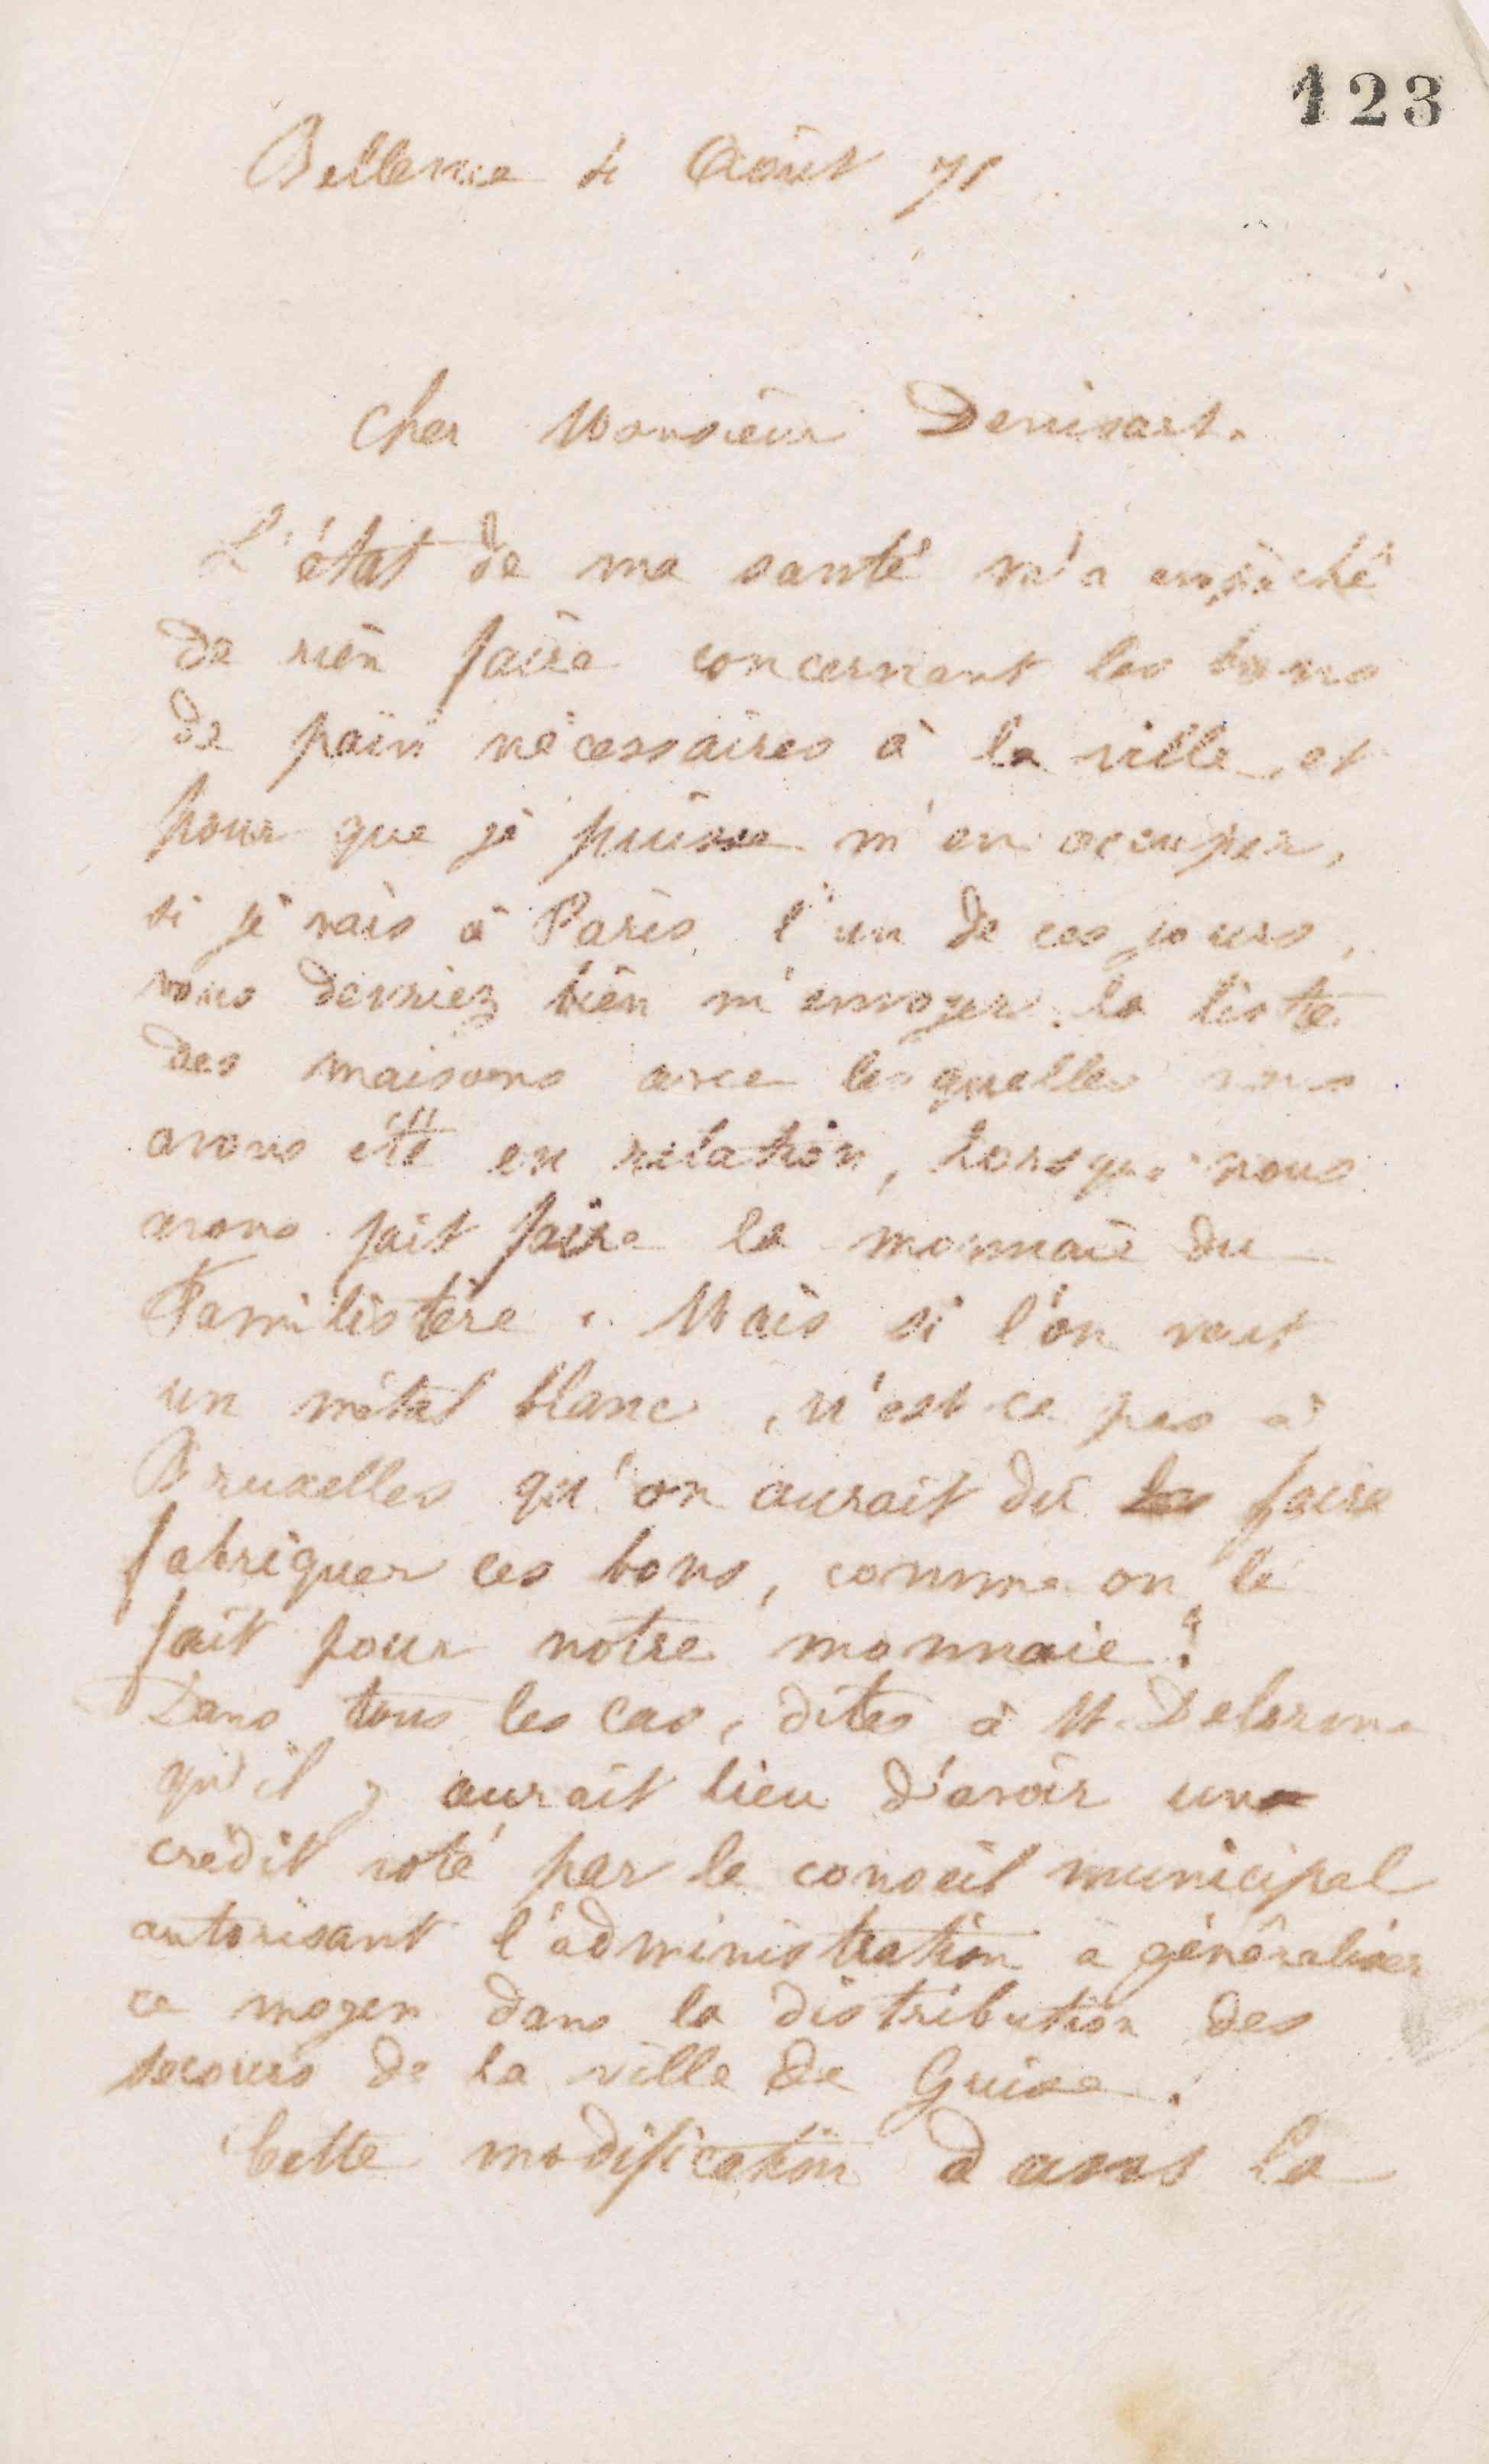 123
Bellevue 4 Août 71
Cher Monsieur Denisart.
L'état de ma santé m'a empêché
de rien faire concernant les bons
de pain nécessaires à la ville, et
pour que je puisse m'en occuper,
si je vais à Paris l'un de ces jours,
vous devriez bien m'envoyer la liste
des maisons avec lesquelles nous
avons été en relation, lorsque nous
avons fait faire la monnaie du
Familistère. Mais si l'on veut
un métal blanc, n'est-ce pas à
Bruxelles qu'on aurait dû faire
fabriquer ces bons, comme on l'a
fait pour notre monnaie?
Dans tous les cas, dites à M. Delorme
qu'il y aurait lieu d'avoir un
crédit voté par le conseil municipal
autorisant l'administration à généraliser
ce moyen dans la distribution des
secours de la ville de Guise.
Cette modification dans la